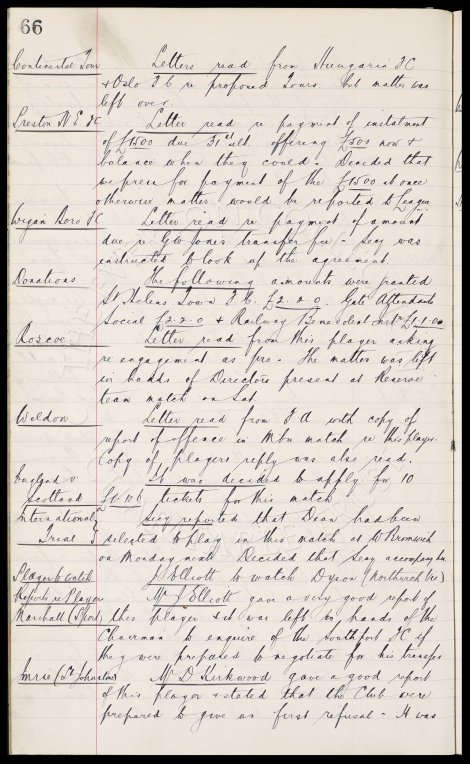 66
Continental Tour Letters read from Hungaria FC
& Oslo F C re proposed Tours but matter was
left over.
Preston N E FC Letter read re payment of instalment
of £1500 due 31st ult. offering £500 now &
balance when they could. Decided that
we press for payment of the £1500 at once
otherwise matter would be reported to League.
Wigan Boro FC Letter read re payment of amount
due re G W Jones transfer fee - Secy was
instructed to look up the agreement.
Donations The following amounts were granted
St Helens Town F C. £2.2.0. Gate Attendants
Social £2.2.0 & Railway Benevolent Inst £1.1.0
Roscoe. Letter read from this player asking
re engagement as pro. The matter was left
in hands of Directors present at Reserve
team match on Sat.
Weldon Letter read from F A with copy of
report of offence in Mbro match re this player.
Copy of players reply was also read.
England v It was decided to apply for 10
Scotland £1. 10/6 tickets for this match
International Secy reported that Dean had been
Trial selected to play in this match at W Bromwich
on Monday next. Decided that Secy accompany him.
Player to watch J Elliott to watch Dyson (Northwich Vic)
Reports re Player Mr J Elliott gave a very good report of
Marshall (S'port) this player & it was left in hands of the
Chairman to enquire of the Southport FC if
they were prepared to negotiate for his transfer
Imrie (St Johnstone) Mr D Kirkwood gave a good report
of this player & stated that the Club were
prepared to give us first refusal - It was